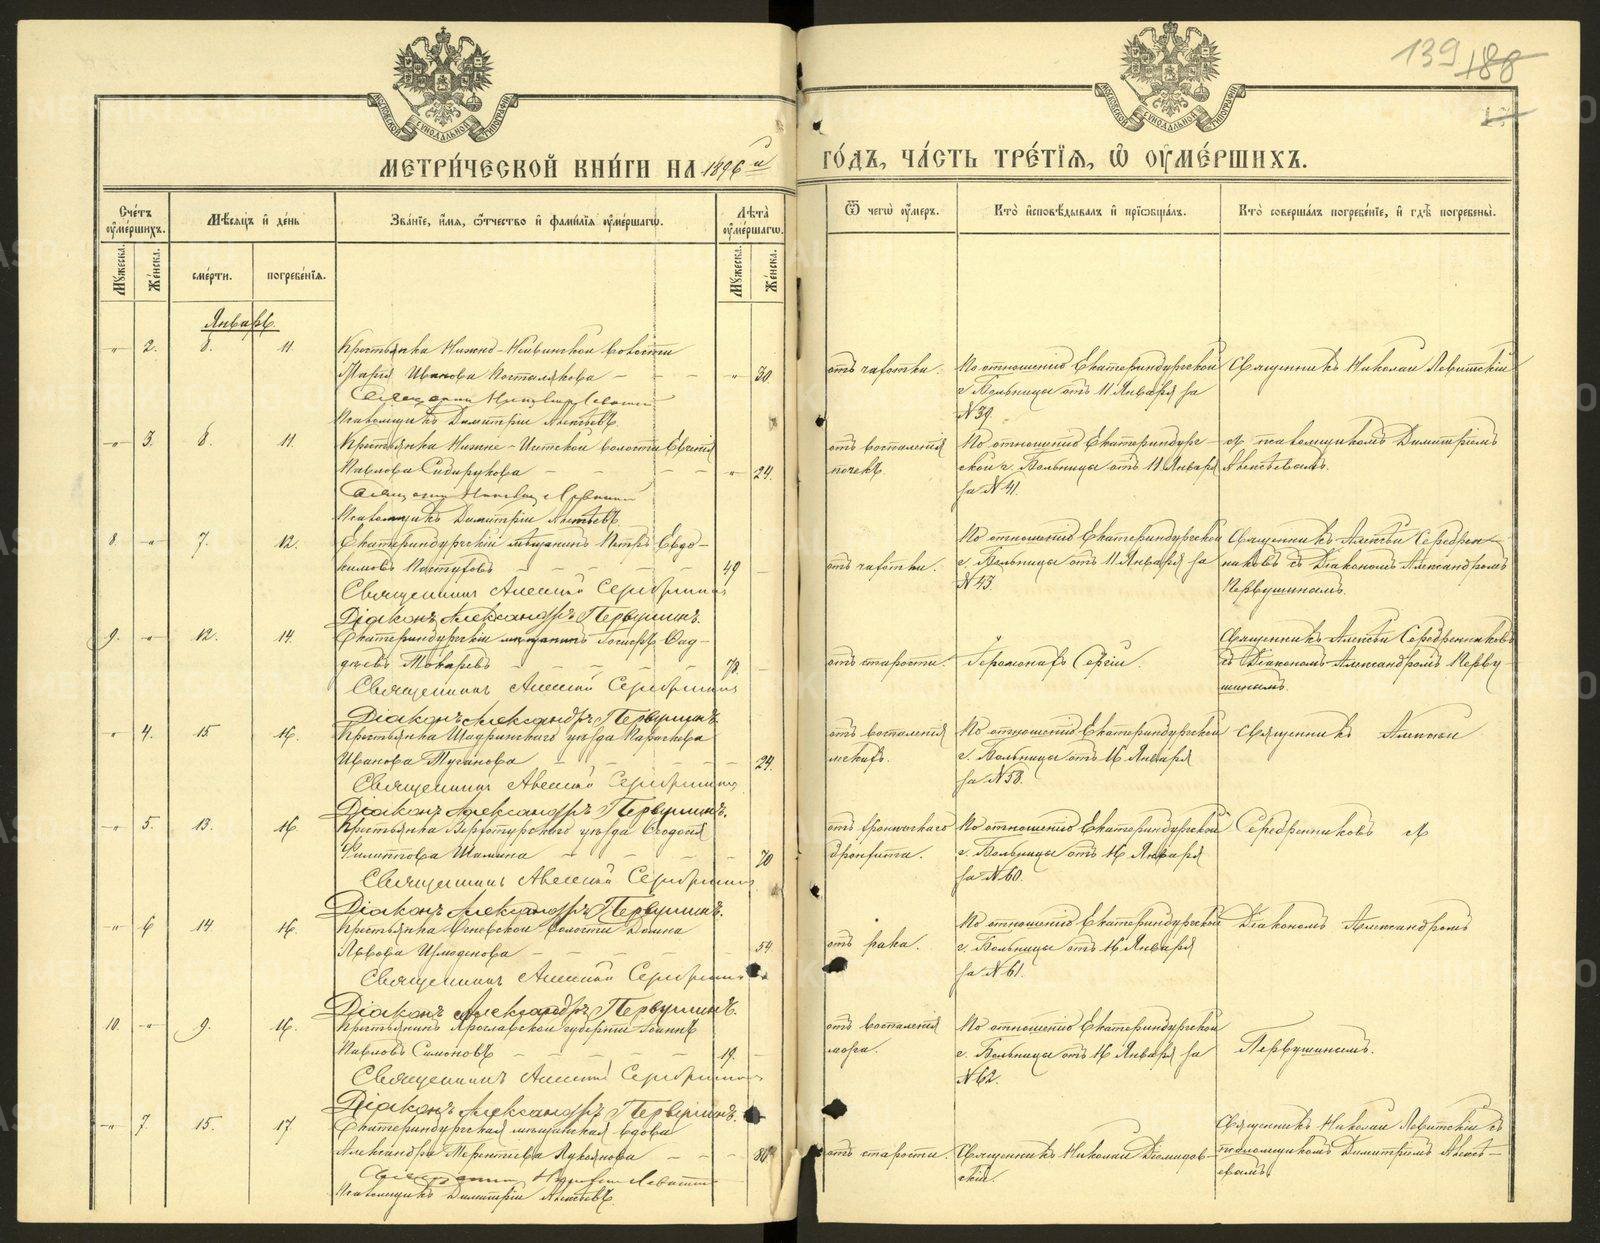 139 188
МЕТРИ́ЧЕСКОЙ КНИ́ГИ НА 1896 й ГО́ДЪ, ЧА́СТЬ ТРЕ́ТІѦ, Ѡ ОУМЕ́РШИХЪ.
Сче́тъ оуме́ршихъ.
Му́жеска.
Же́нска.
Мѣ́сяцъ и де́нь
сме́рти.
погребе́нїѧ.
Зва́нїе, и́мѧ, ѻ́тчество и фами́лїѧ оуме́ршагѡ.
Лѣ́та оуме́ршагѡ.
Му́жеска.
Же́нска.
Ѿ чегѡ̀ оу́меръ.
Кто̀ исповѣ́дывалъ и прїѡбща́лъ.
Кто̀ соверша́лъ погребе́нїе, и гдѣ̀ погребены̀.
Январь.
-"- 2. 8. 11. Крестьянка Нижно-Исетской волости
Марія Иванова Постылякова - - - -"- 30.
Псаломщикъ Димитрій Алексѣевъ.
отъ чахотки.
По отношенію Екатеринбургской
г. Больницы отъ 11 Января за
№ 39.
Священникъ Николай Левитскій
-"- 3. 8. 11. Крестьянка Нижне-Исетской волости Евгенія
Павлова Сибирукова - - - - -"- 24.
Псаломщикъ Димитрій Алексѣевъ.
отъ воспаленія
почекъ.
По отношенію Екатеринбург-
ской г. Больницы отъ 11 Января
за № 41.
съ псаломщикомъ Димитріемъ
Алексѣевымъ.
8. -"- 7. 12. Екатеринбургскій мѣщанинъ Петръ Евдо-
кимовъ Пастуховъ - - - - 49 -
Священникъ Алексій Серебренник
Діаконъ Александръ Первушинъ.
отъ чахотки.
По отношенію Екатеринбургской
г. Больницы отъ 11 Января за
№ 43.
Священникъ Алексѣй Серебрен-
никовъ съ Діакономъ Александромъ
Первушинымъ.
9. -"- 12. 14. Екатеринбургскій мѣщанинъ
дѣевъ Токаревъ - - - -
Священникъ Алексій Серебренник
Діаконъ Александръ Первушинъ.
отъ старости.
Іеромонахъ Сергій.
Священникъ Алексѣй Серебренниковъ
съ Діакономъ Александромъ Перву-
шинымъ.
-"- 4. 15 16. Крестьянка Шадринскаго уѣзда Параскева
Иванова Туганова - - - - 24.
Священникъ Алексій Серебренник
Діаконъ Александръ Первушинъ.
отъ воспаленія
легкихъ.
По отношенію Екатеринбургской
г. Больницы отъ 16 Января
за № 58.
Священникъ Алексѣй
-"- 5. 13. 16. Крестьянка Верхотурскаго уѣзда Ѳеодосія
Филиппова Шамина - - - - 70
Священникъ Алексій Серебренник
Діаконъ Александръ Первушинъ.
отъ хроническаго
бронхита.
По отношенію Екатеринбургской
г. Больницы отъ 16 Января
за № 60.
Серебренниковъ съ
-"- 6 14 16. Крестьянка волости Домна
Львова - - - 54
Священникъ Алексій Серебренник
Діаконъ Александръ Первушинъ.
отъ рака.
По отношенію Екатеринбургской
г. Больницы отъ 16 Января
за № 61.
Діакономъ Александромъ
10. -"- 9. 16. Крестьянинъ Ярославской губерніи Іоаннъ
Павловъ Симоновъ - - - 19. -
Священникъ Алексій Серебренник
Діаконъ Александръ Первушинъ.
отъ воспаленія
мозга.
По отношенію Екатеринбургской
г. Больницы отъ 16 Января за
№ 62.
Первушинымъ.
-"- 7. 15. 17 Екатеринбургская мѣщанская вдова
Александра Терентьева Луконова - - - 80
Псаломщикъ Димитрій Алексѣевъ
отъ старости.
Священникъ Николай Діомидов-
скій.
Священникъ Николай Левитскій съ
псаломщикомъ Димитріемъ Алексѣ-
евымъ.